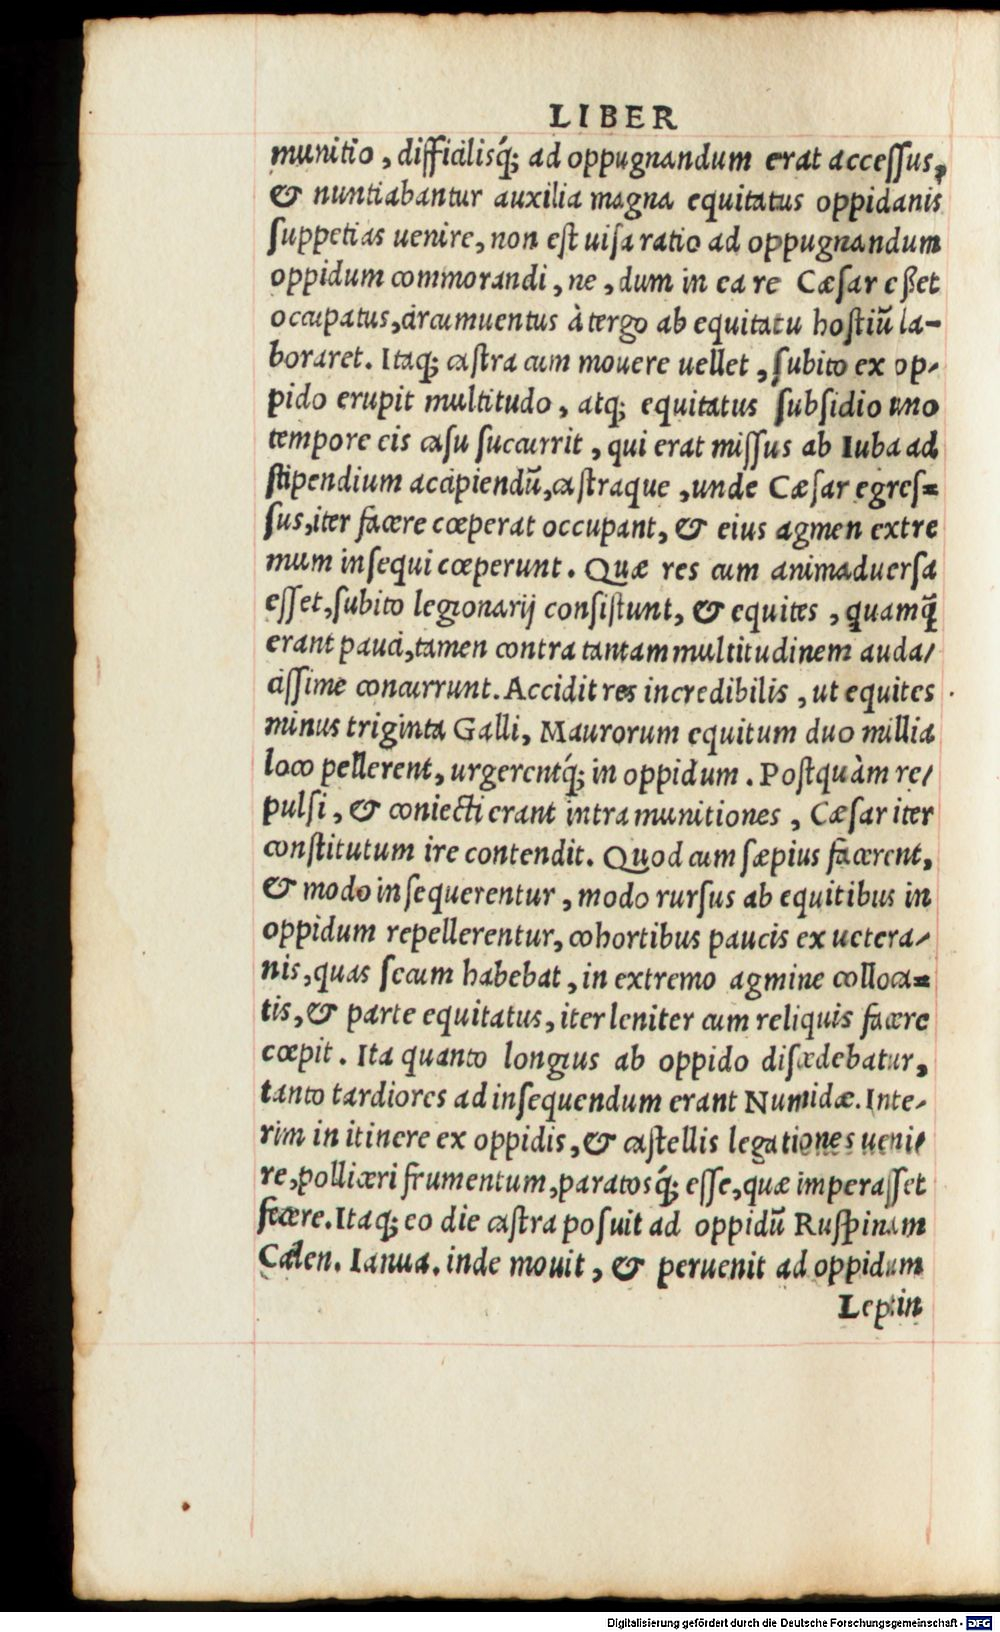 LIBER
munitio, difficilisq́; ad oppugnandum erat accessus,
& nuntiabantur auxilia magna equitatus oppidanis
ſuppetias uenire, non eſt uiſa ratio ad oppugnandum
oppidum commorandi, ne, dum in ea re Cæſar eßet
occupatus, circumuentus à tergo ab equitatu hoſtiũ la-
boraret. Itaq; caſtra cum mouere uellet, ſubito ex op-
pido erupit multitudo, atq; equitatus ſubſidio uno
tempore eis caſu ſuccurrit, qui erat miſſus ab Iuba ad
ſtipendium accipiendũ, caſtraque, unde Cæſar egreſ=
ſus, iter facere cœperat occupant, & eius agmen extre
mum inſequi cœperunt. Quæ res cum animaduerſa
eſſet, ſubito legionarij conſiſtunt, & equites, quamq̃
erant pauci, tamen contra tantam multitudinem auda/
ciſſime concurrunt. Accidit res incredibilis, ut equites
minus triginta Galli, Maurorum equitum duo millia
loco pellerent, urgerentq́; in oppidum. Poſtquàm re/
pulſi, & coniecti erant intra munitiones, Cæſar iter
conſtitutum ire contendit. Quod cum ſæpius facerent,
& modo inſequerentur, modo rurſus ab equitibus in
oppidum repellerentur, cohortibus paucis ex uetera/
nis, quas ſecum habebat, in extremo agmine colloca=
tis, & parte equitatus, iter leniter cum reliquis facere
cœpit. Ita quanto longius ab oppido diſcedebatur,
tanto tardiores ad inſequendum erant Numidæ. Inte/
rim in itinere ex oppidis, & caſtellis legationes ueni/
re, polliceri frumentum, paratosq́; eſſe, quæ imperaſſet
facere. Itaq; eo die caſtra poſuit ad oppidũ Ruſpinam
Calen. Ianua. inde mouit, & peruenit ad oppidum
Leptin
Digitalisierung gefördert durch die Deutsche Forschungsgemeinschaft - DFG